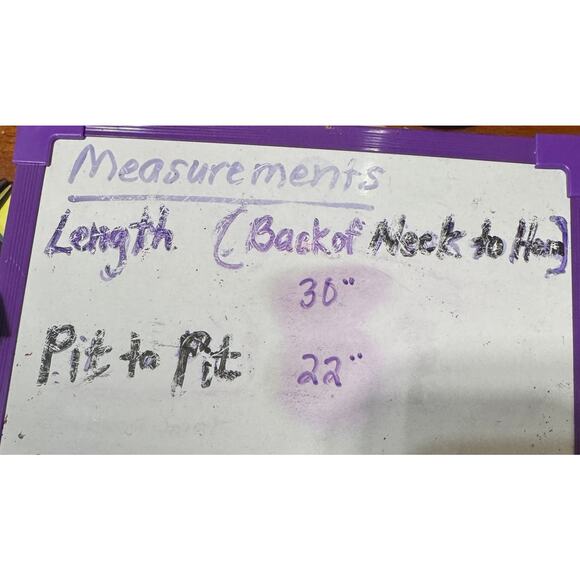 Measurements
Length (Back of Neck to Hem)
30"
Pit to Pit 22"